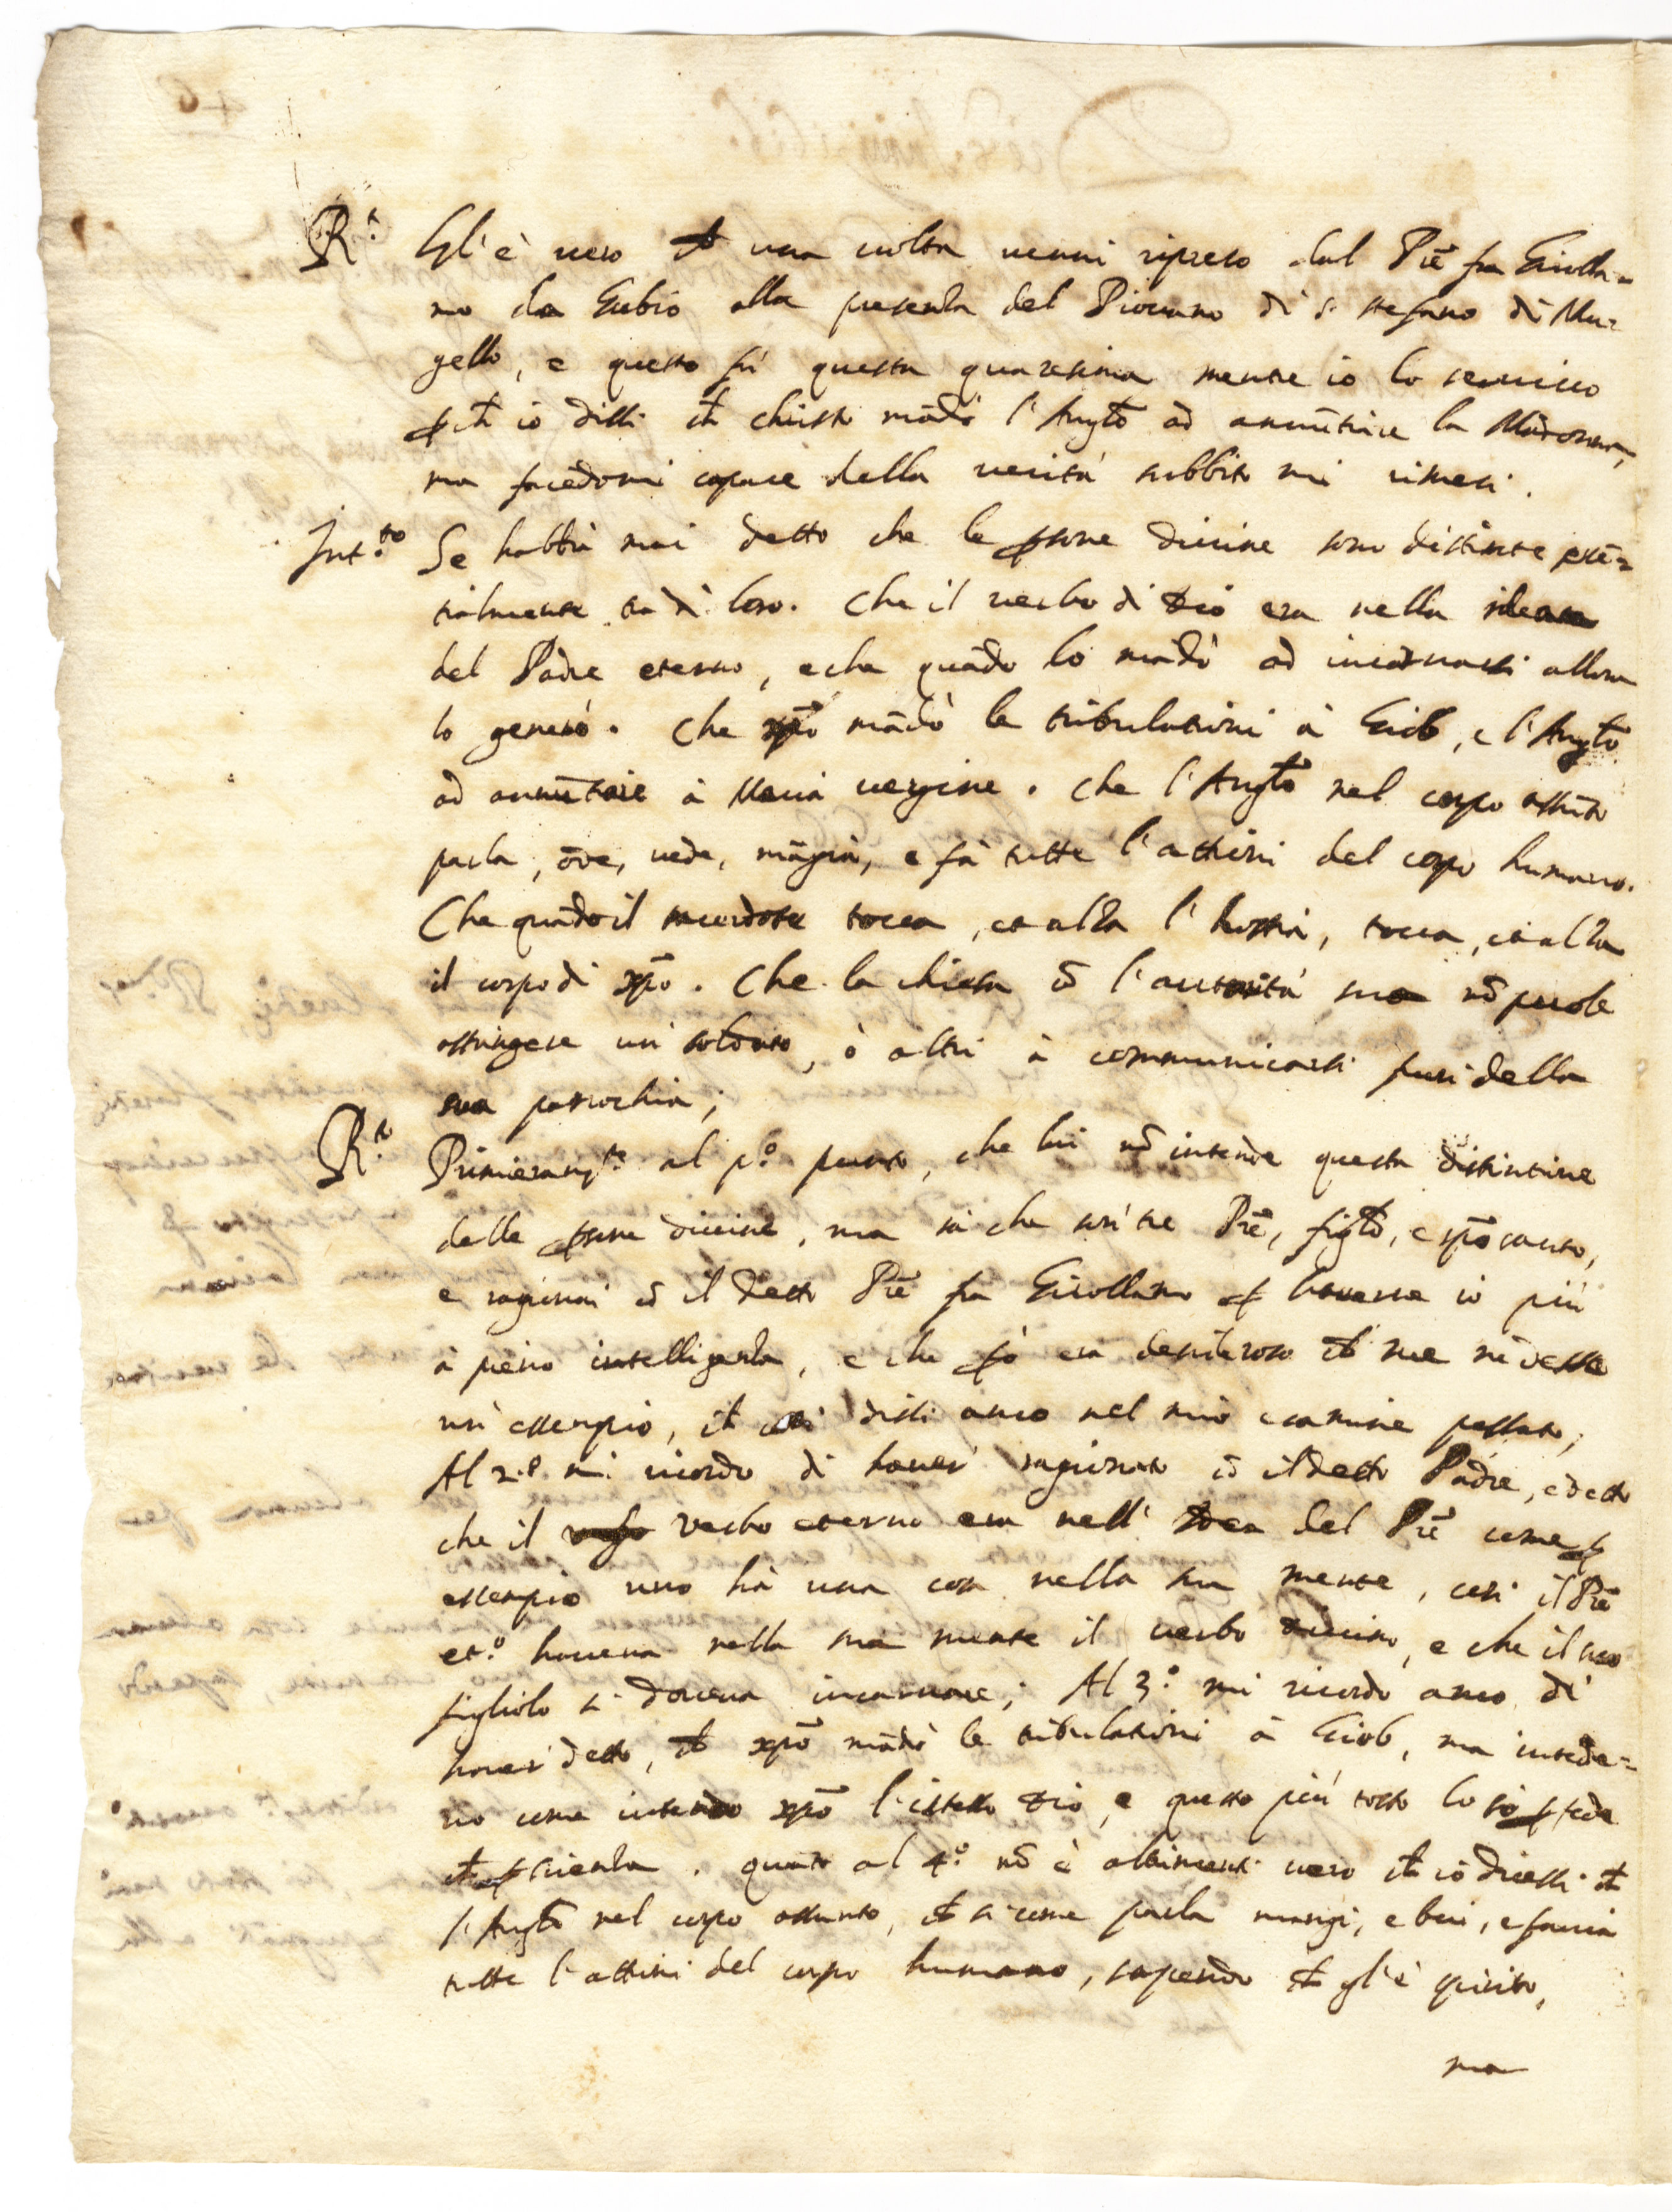 R.ᵗ Gl'è vero ch̄ una volta venni ripreso dal Prē fra Girolla=
mo da Gubio alla presenza del Piovano di S. Stefano di Mu=
gello, e questo fù questa quaresima mentre io lo servivo
ꝑch̄ io dissi ch̄ christo mādò l'Angl̄o ad annūtiare la Madonna,
ma facēdomi capace della verità subbito mi rimesi.
Int.ᵗᵒ Se habbia mai detto che le ꝑsone divine sono distinte essē=
tialmente trà di loro. Che il verbo di Dio era nella idea
del Padre eterno, e che quādo lo mādò ad incarnarsi allora
lo generò. Che xp̄o mādò le tribulationi à Giob, e l'Angl̄o
ad annūtiare à Maria vergine. Che l'Angl̄o nel corpo assūto
parla, ōde, vede, māgia, e fà tutte l'attioni del corpo humano.
Che quādo il sacerdote tocca, et alza l'hostia, tocca, et alza
il corpo di xp̄o. Che la chiesa cō l'autorità sua nō puole
astringere un soldato, ò altri à communicarsi fuori della
sua parrochia;
R.ᵗ Primieramᵗᵉ al p.º punto, che lui nō intende questa distintione
delle ꝑsone divine, ma sà che son' tre Prē, figl̄o, e sp̄o santo,
e ragionai cō il detto Prē fra Girollamo ꝑ haverne io più
à pieno intelligenza, e che ꝑò era desideroso ch̄ me ne desse
un' essempio, ch̄ così dissi anco nel mio esamine passato;
Al 2.º mi ricordo di haver' ragionato cō il detto Padre, e detto
che il verbo eterno era nell' idea del Prē come ꝑ
essempio uno hà una cosa nella sua mente, così il Prē
et.º haveva nella sua mente il verbo divino, e che il suo
figliolo si doveva incarnare; Al 3.º mi ricordo anco di
haver' detto, ch̄ xp̄o mādò le tribulationi à Giob, ma intēde=
vo come intendo xp̄o l'istesso Dio, e questo più tosto lo sò ꝑ fede
ch̄ ꝑ scienza. quāto al 4.º nō è altrimenti vero ch̄ io dicessi ch̄
l'Angl̄o nel corpo assunto, ch̄ si come parla mangi, e bevi, e faccia
tutte l'attioni del corpo humano, sapendo ch̄ gl'è spirito,
ma